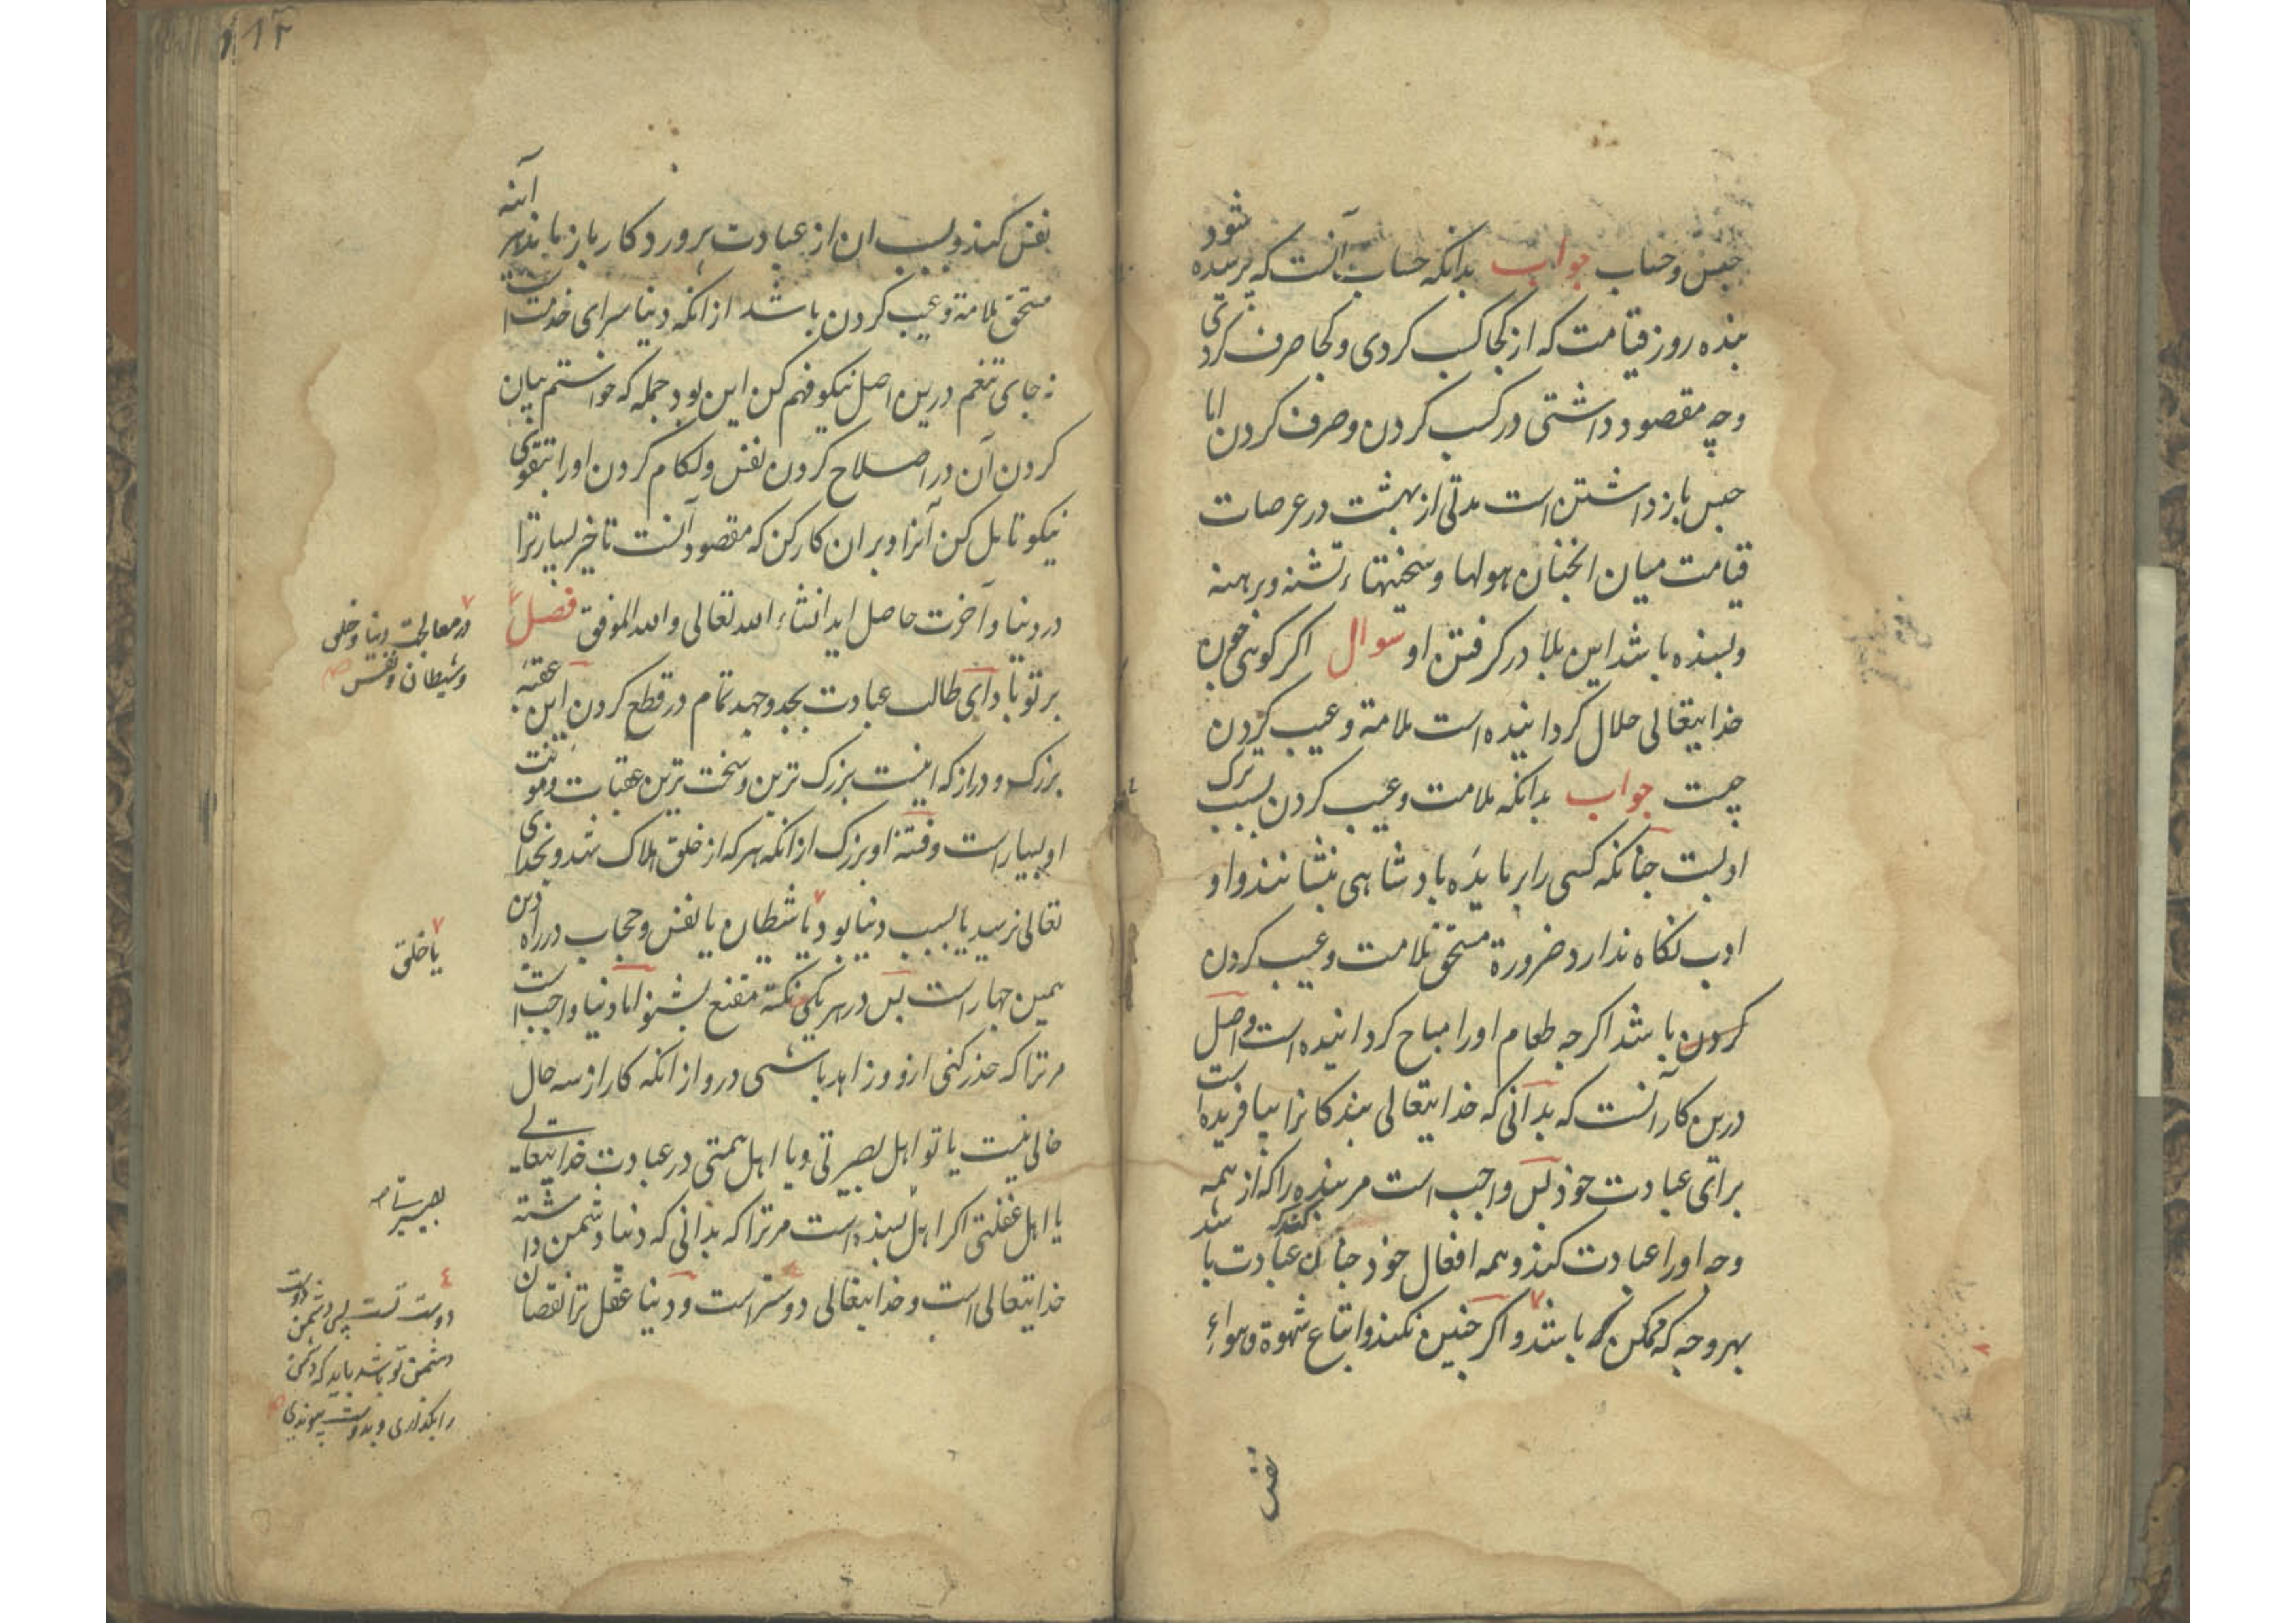 حبس وحساب جواب بدانکه حساب آنست که پرسیده شود
بنده روز قیامت که از کجا کسب کردی و کجا صرف کردی
وچه مقصود داشتی در کسب کردن و صرف کردن اما
حبس باز داشتن است مدتی از بهشت در عرصات
قیامت میان انچنان هولها وسختیها تشنه وبرهنه
وبسنده باشد این بلا در کرفتن او سوال اکر کوئی چون
خدایتعالی حلال کردانیده است ملامة وعیب کردن
چیست جواب بدانکه ملامت وعیب کردن بسبب ترک
ادبست چنانکه کسی را بر مایده بادشاهی بنشانند واو
ادب نکاه ندارد ضرورة مستحق ملامت وعیب کردن
کردن باشد اکرچه طعام اورا مباح کردانیده است واصل
درین کار آنست که بدانی که خدایتعالی بندکانرا بیافریده است
برای عبادت خود پس واجب است مر بنده را که از همه
وجه اورا عبادت کند وهمه افعال خود چنان کند که عبادت باشد
بهر وجه که ممکن باشد و اکر چنین نکند واتباع شهوة وهواء
نفس
۱۱۳
نفس کند وبسبب ان از عبادت پروردکار باز ماند هر آئنه
مستحق ملامة وعیب کردن باشد از انکه دنیا سرای خدمت است
نه جای تنعم درین اصل نیکو فهم کن این بود جمله که خواستم بیان
کردن آن در اصلاح کردن نفس ولکام کردن اورا بتقوی
نیکو تامل کن آنرا وبران کار کن که مقصود آنست تا خیر بسیار ترا
در دنیا وآخرت حاصل اید انشاء الله تعالی والله الموفق فصل
در معالجت دنیا وخلق
وشیطان ونفس صح
بر تو باد ای طالب عبادت بجد وجهد تمام در قطع کردن این عقبه
بزرک ودراز که اینست بزرک ترین وسخت ترین عقبات ومونت
او بسیار است وفتنه او بزرک از انکه هرکه از خلق هلاک شد وبخدای
تعالی نرسید یا بسبب دنیا بود یا شیطان یا نفس وحجاب در راه دین
یا خلق
همین چهار است پس در هر یکی نکته مقنع بشنو اما دنیا واجب است
مر ترا که حذر کنی ازو وزاهد باشی درو از انکه کار از سه حال
خالی نیست یا تو اهل بصیرتی ویا اهل همتی در عبادت خدایتعالی
یا اهل غفلتی اکر اهل بسنده است مر ترا که بدانی که دنیا دشمن داشته
بصیرت
خدایتعالی است و خدایتعالی دوستر است ودنیا عقل ترا نقصان
دوست تست پس دشمن دوست
دشمن تو باشد باید که دشمن
را بکذاری وبدوست پیوندی